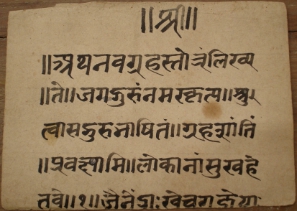 ॥श्री॥
॥अथनवग्रहस्तोत्रंलिख्य
॥ते॥जगद्गुरुंनमस्कृत्य॥श्रु
त्वासद्गुरुभाषितं॥ग्रहशांतिं
॥प्रवक्ष्यामि॥लोकानांसुखहे
तवे॥१॥जैनेंद्राः